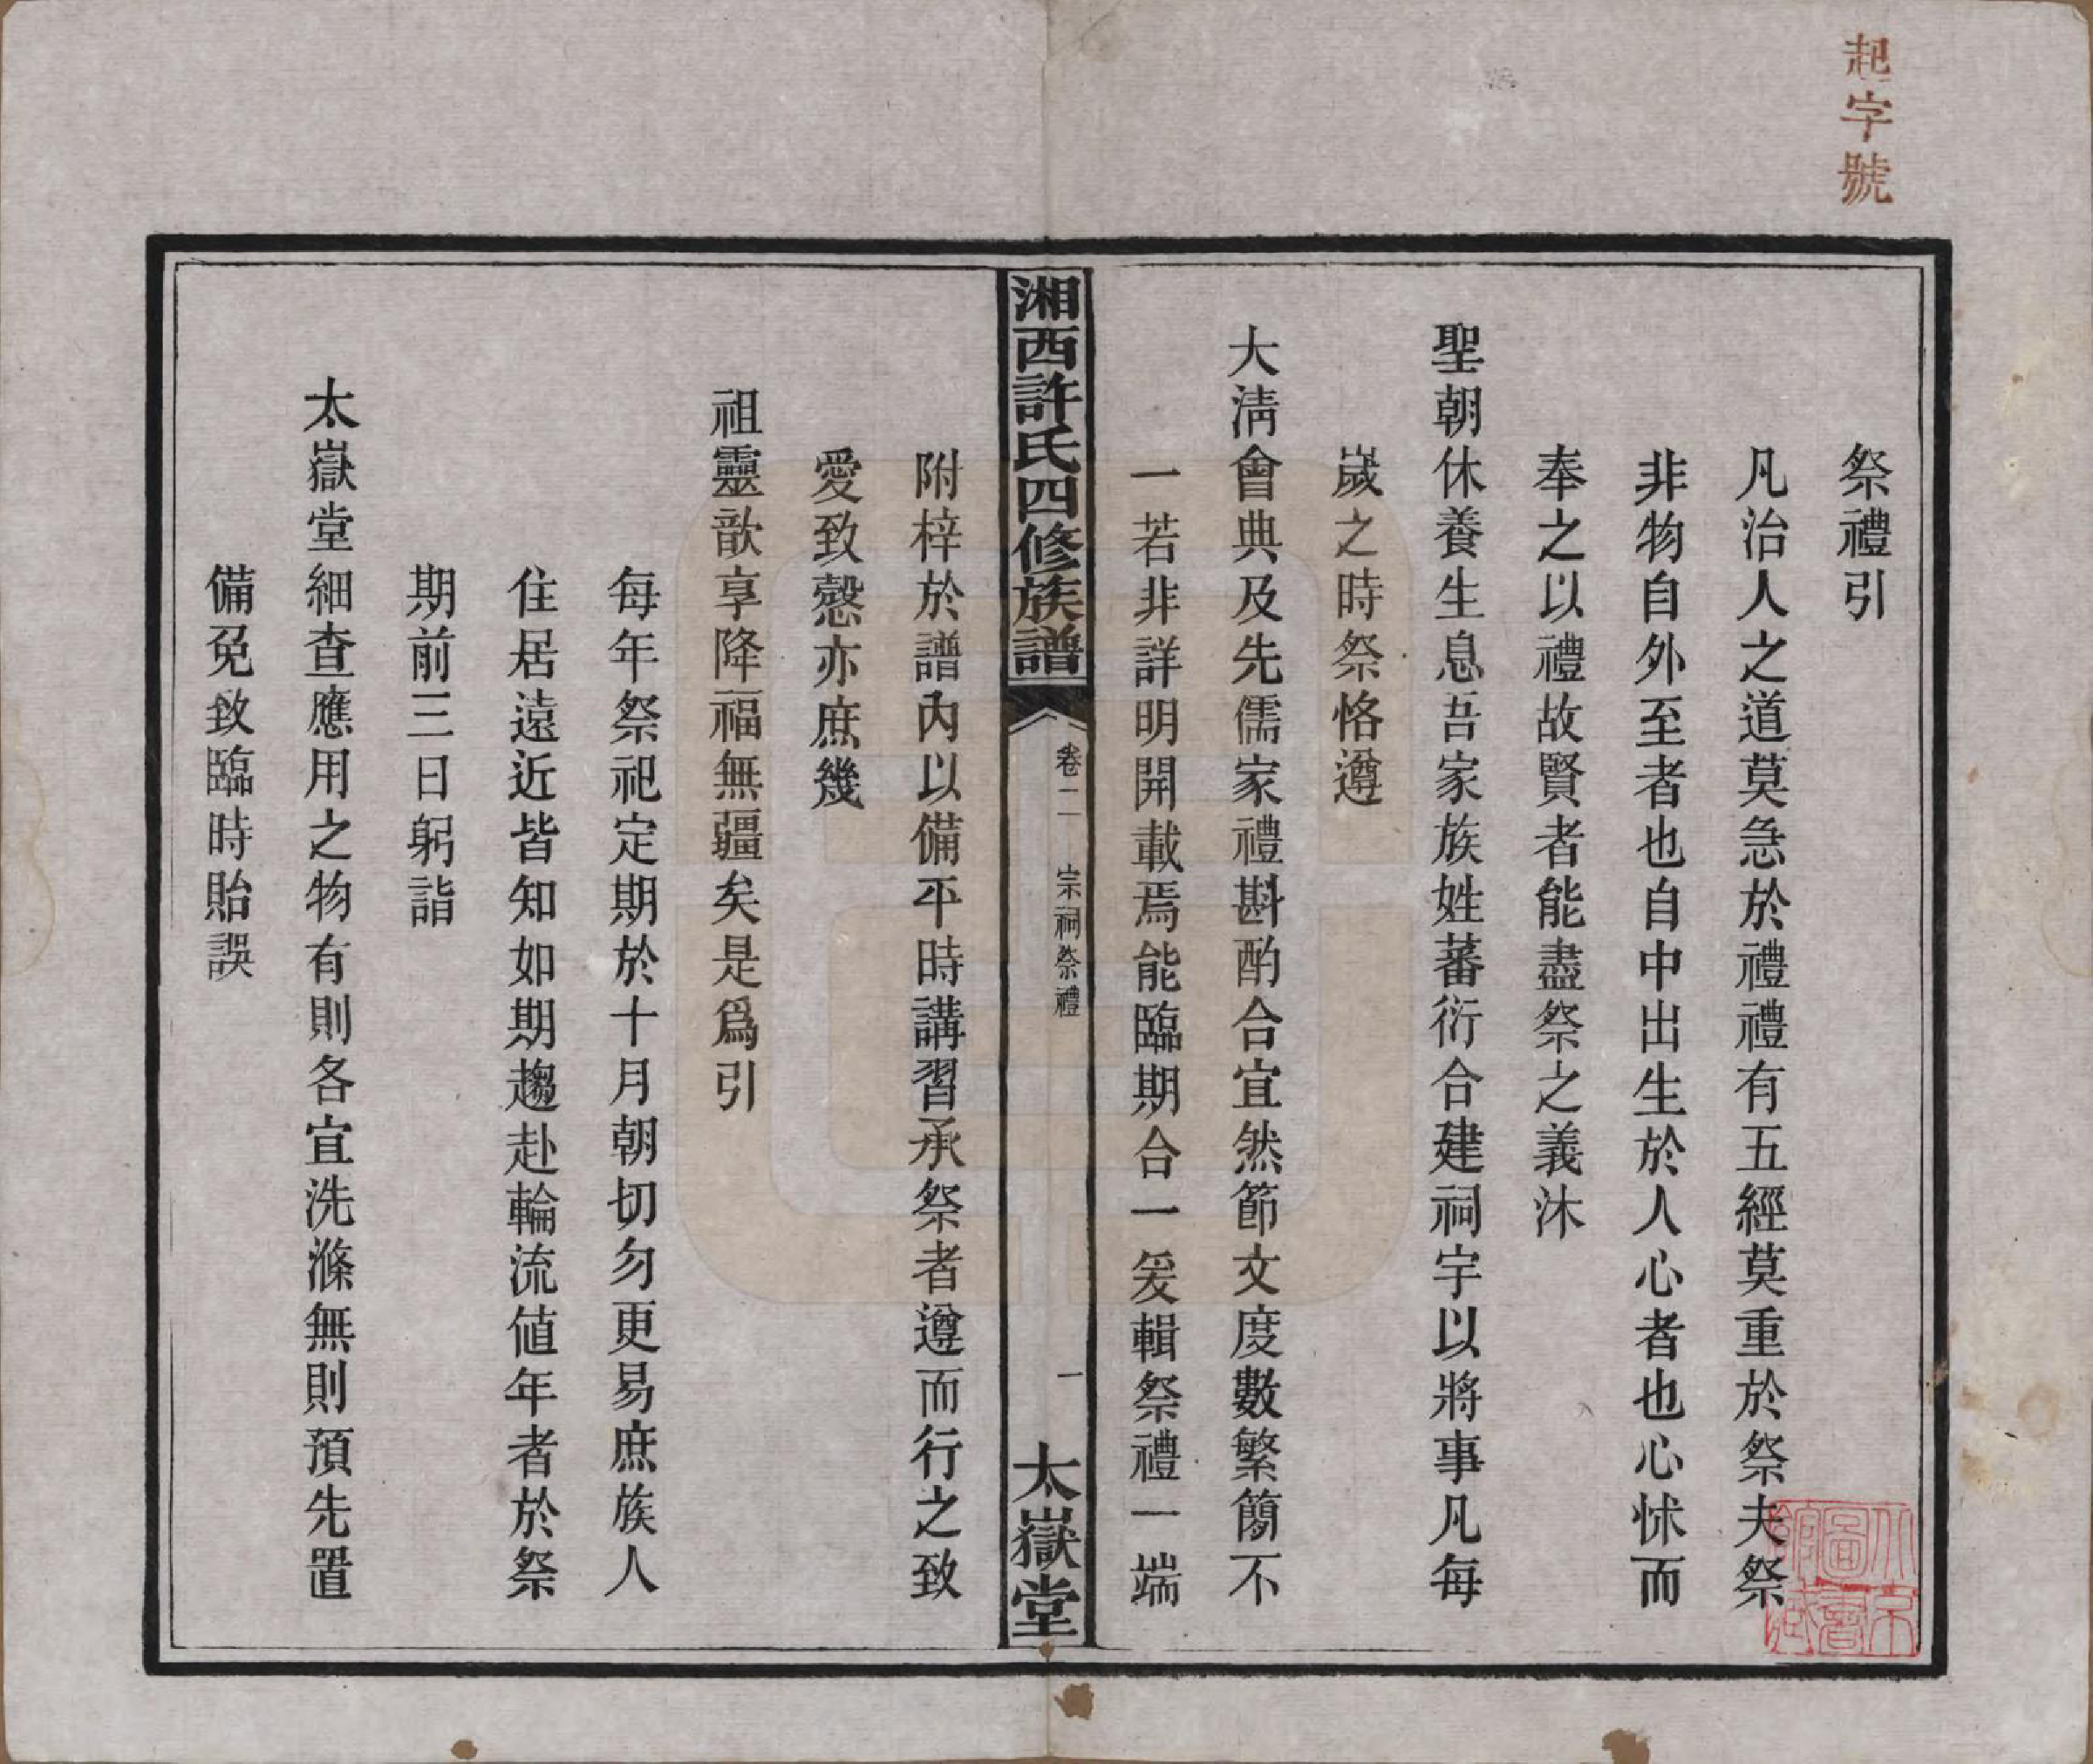 起字號
祭禮引
凡治人之道莫急於禮禮有五經莫重於祭夫祭
非物自外至者也自中出生於人心者也心怵而
奉之以禮故賢者能盡祭之義沐
聖朝休養生息吾家族姓蕃衍合建祠宇以將事凡每
歲之時祭恪遵
大淸會典及先儒家禮斟酌合宜然節文度數繁簡不
一若非詳明開載焉能臨期合一爰輯祭禮一端
湘西許氏四修族譜
卷二 宗祠祭禮
一
太嶽堂
附梓於譜內以備平時講習承祭者遵而行之致
愛致愨亦庶幾
祖靈歆享降福無疆矣是爲引
每年祭祀定期於十月朝切勿更易庶族人
住居遠近皆知如期趨赴輪流値年者於祭
期前三日躬詣
太嶽堂細查應用之物有則各宜洗滌無則預先置
備免致臨時貽誤
北京
圖書
館藏